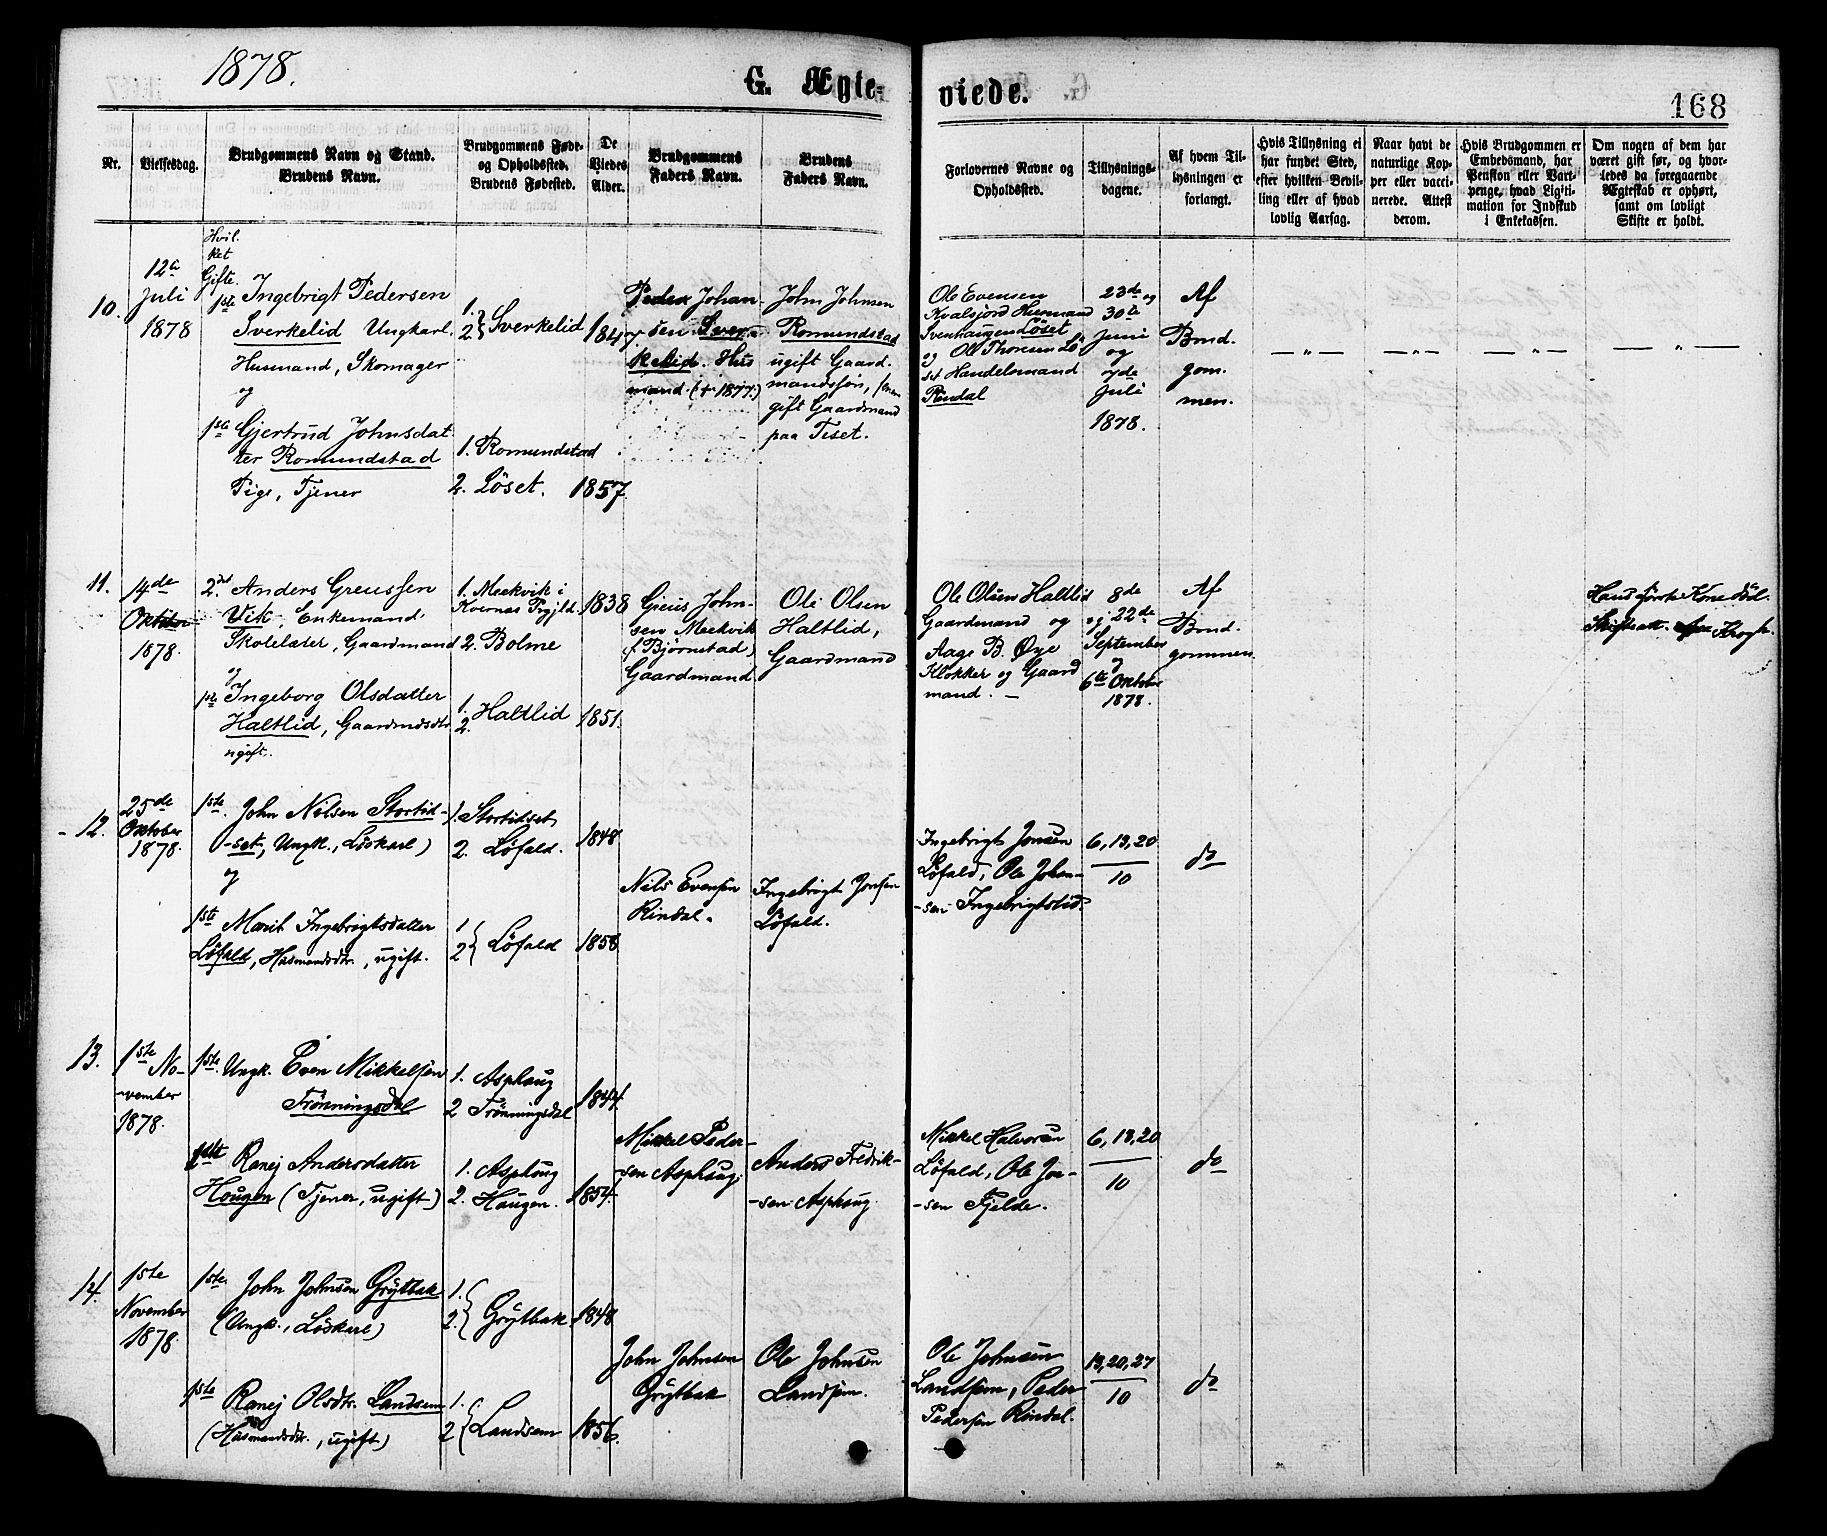 1878.
G. Ægte-
viede.
168
Nr.
Vielsesdag.
Brudgommens Navn og Stand.
Brudens Navn.
Brudgommens Føde-
og Opholdssted.
Brudens Fødested.
De
Viedes
Alder.
Brudgommens
Faders Navn.
Brudens
Faders Navn.
Forlovernes Navne og
Opholdssted.
Tillysnings-
dagene.
Af hvem Til-
lysningen er
forlangt.
Hvis Tillysning ei
har fundet Sted,
efter hvilken Bevil-
ling eller af hvad
lovlig Aarsag.
Naar havt de
naturlige Kop-
per eller vacci-
nerede. Attest
derom.
Hvis Brudgommen er
Embedsmand, har
Pension eller Vart-
penge, hvad Ligiti-
mation for Indskud
i Enkekassen.
Om nogen af dem har
været gift før, og hvor-
ledes da foregaaende
Ægteskab er ophørt,
samt om lovligt
Skifte er holdt.
Hvil
ket
Gifte.
10.
12te
Juli
1878
1ste Ingebrigt Pedersen
Sverkelid Ungkarl
Husmand, Skomager
og
1ste Gjertrud Johnsdat
ter Romundstad
Pige, Tjener
1.
2. } Sverkelid
1. Romundstad
2. Löset.
1847
1857
Peder Johan-
sen Sver-
kelid. Hus
mand. († 1877.)
John Johnsen
Romundstad
ugift Gaard.
mandssøn,
gift Gaardmand
paa Tiset.
Ole Evensen
Kvalsjord Husmand
Svenhaugen Löset
og Ole Thoresen Lö
set Handelsmand
Rindal
23de og
30te
Juni
og
7de
Juli
1878.
Af
Brud.
gom.
men.
— " —
— " —
— " —
— " —
11.
14de
Oktober
1878.
2det Anders Greussen
Vik, Enkemand
Skolelærer, Gaardmand
og
1ste Ingeborg Olsdatter
Haltlid, Gaardmdsdtr
ugift.
1. Meekvik i
Kvernæs Prgjld
2. Bolme
1.
2. Haltlid
1838
1851.
Greus John-
sen Meekvik
(f. Bjørnstad)
Gaardmand
Ole Olsen
Haltlid,
Gaardmand
Ole Olsen Haltlid
Gaardmand og
Aage B. Øye
Klokker og Gaard
mand. —
8de
og 22de
September
og
6te Oktober
1878.
Af
Brud.
gommen.
Hans første Kone død.
Skifteatt.
12.
25de
Oktober
1878.
1ste John Nilsen Stortid-
-set, Ungk., Löskarl)
og
1ste Marit Ingebrigtsdatter
Löfald, Husmandsdtr., ugift.
1. Stortidset
2. Löfald.
1
2 { Löfald
1848
1858
Nils Evensen
Rindal.
Ingebrigt Jonsen
Löfald.
Ingebrigt Jonsen
Löfald, Ole Johan-
-sen Ingebrigtslid.
6, 13, 20
10
do
13.
1ste No-
-vember
1878.
1ste. Ungk. Even Mikkelsen
Trönningsdal
1ste Ranej Andersdatter
Hougen (Tjener, ugift)
1. Asphaug
2 Trönningsdal
1. Asphoug
2. Haugen.
1844
1854
Mikkel Peder-
sen Asphaug.
Anders Fredrik-
-sen Asphaug.
Mikkel Halvorsen
Löfald, Ole Jon-
-sen Fjelde.
6, 13, 20
10
do
14.
1ste
November
1878.
1ste. John Johnsen Grytbak
(Ungk., Löskarl)
1ste Ranej Olsdtr. Landsem
(Husmandsdtr., ugift)
1.
2. { Grytbak
1.
2 { Landsem
1848
1856.
John Johnsen
Grytbak
Ole Johnsen
Landsem.
Ole Johnsen
Landsem, Peder
Pedersen Rindal.
13, 20, 27
10
do